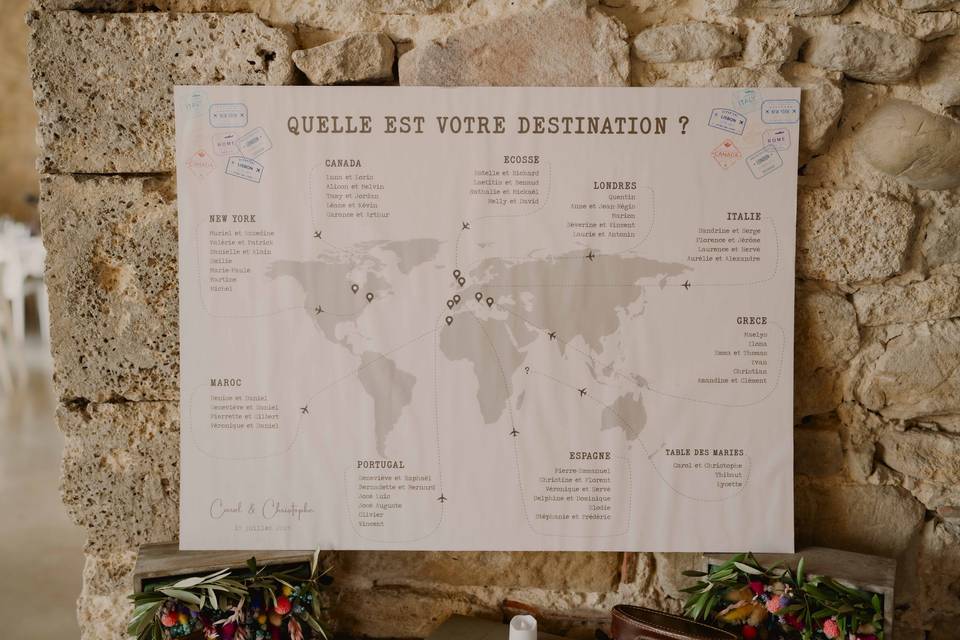 QUELLE EST VOTRE DESTINATION ?
ITALY
NEW YORK
ROME
LISBON
CANADA
NEW YORK
LISBON
ROME
CANADA
CANADA
Luna et Lorin
Alison et Melvin
Tany et Jordan
Léane et Kévin
Garance et Arthur
ECOSSE
Estelle et Richard
Laetitia et Renaud
Nathalie et Mickaël
Nelly et David
LONDRES
Quentin
Anne et Jean-Régis
Marion
Séverine et Vincent
Laurie et Antonin
ITALIE
Sandrine et Serge
Florence et Jérôme
Laurence et Hervé
Aurélie et Alexandre
NEW YORK
Muriel et
Valérie et Patrick
Danielle et Alain
Emilie
Marie-Paule
Martine
Michel
GRECE
Maelys
Ilona
Emma et Thomas
Evan
Christian
Amandine et Clément
MAROC
Denise et Daniel
Geneviève et Daniel
Pierrette et Gilbert
Véronique et Daniel
?
PORTUGAL
Geneviève et Raphaël
Bernadette et Bernard
José Luis
José Auguste
Olivier
Vincent
ESPAGNE
Pierre-Emmanuel
Christine et Florent
Véronique et Hervé
Delphine et Dominique
Elodie
Stéphanie et Frédéric
TABLE DES MARIES
Carol et Christophe
Thibaut
Lysette
Carol & Christophe